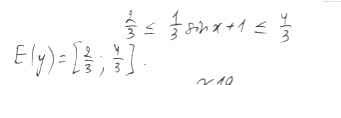 2/3 ≤ 1/3 sin x + 1 ≤ 4/3
E(y) = [2/3; 4/3].
~10